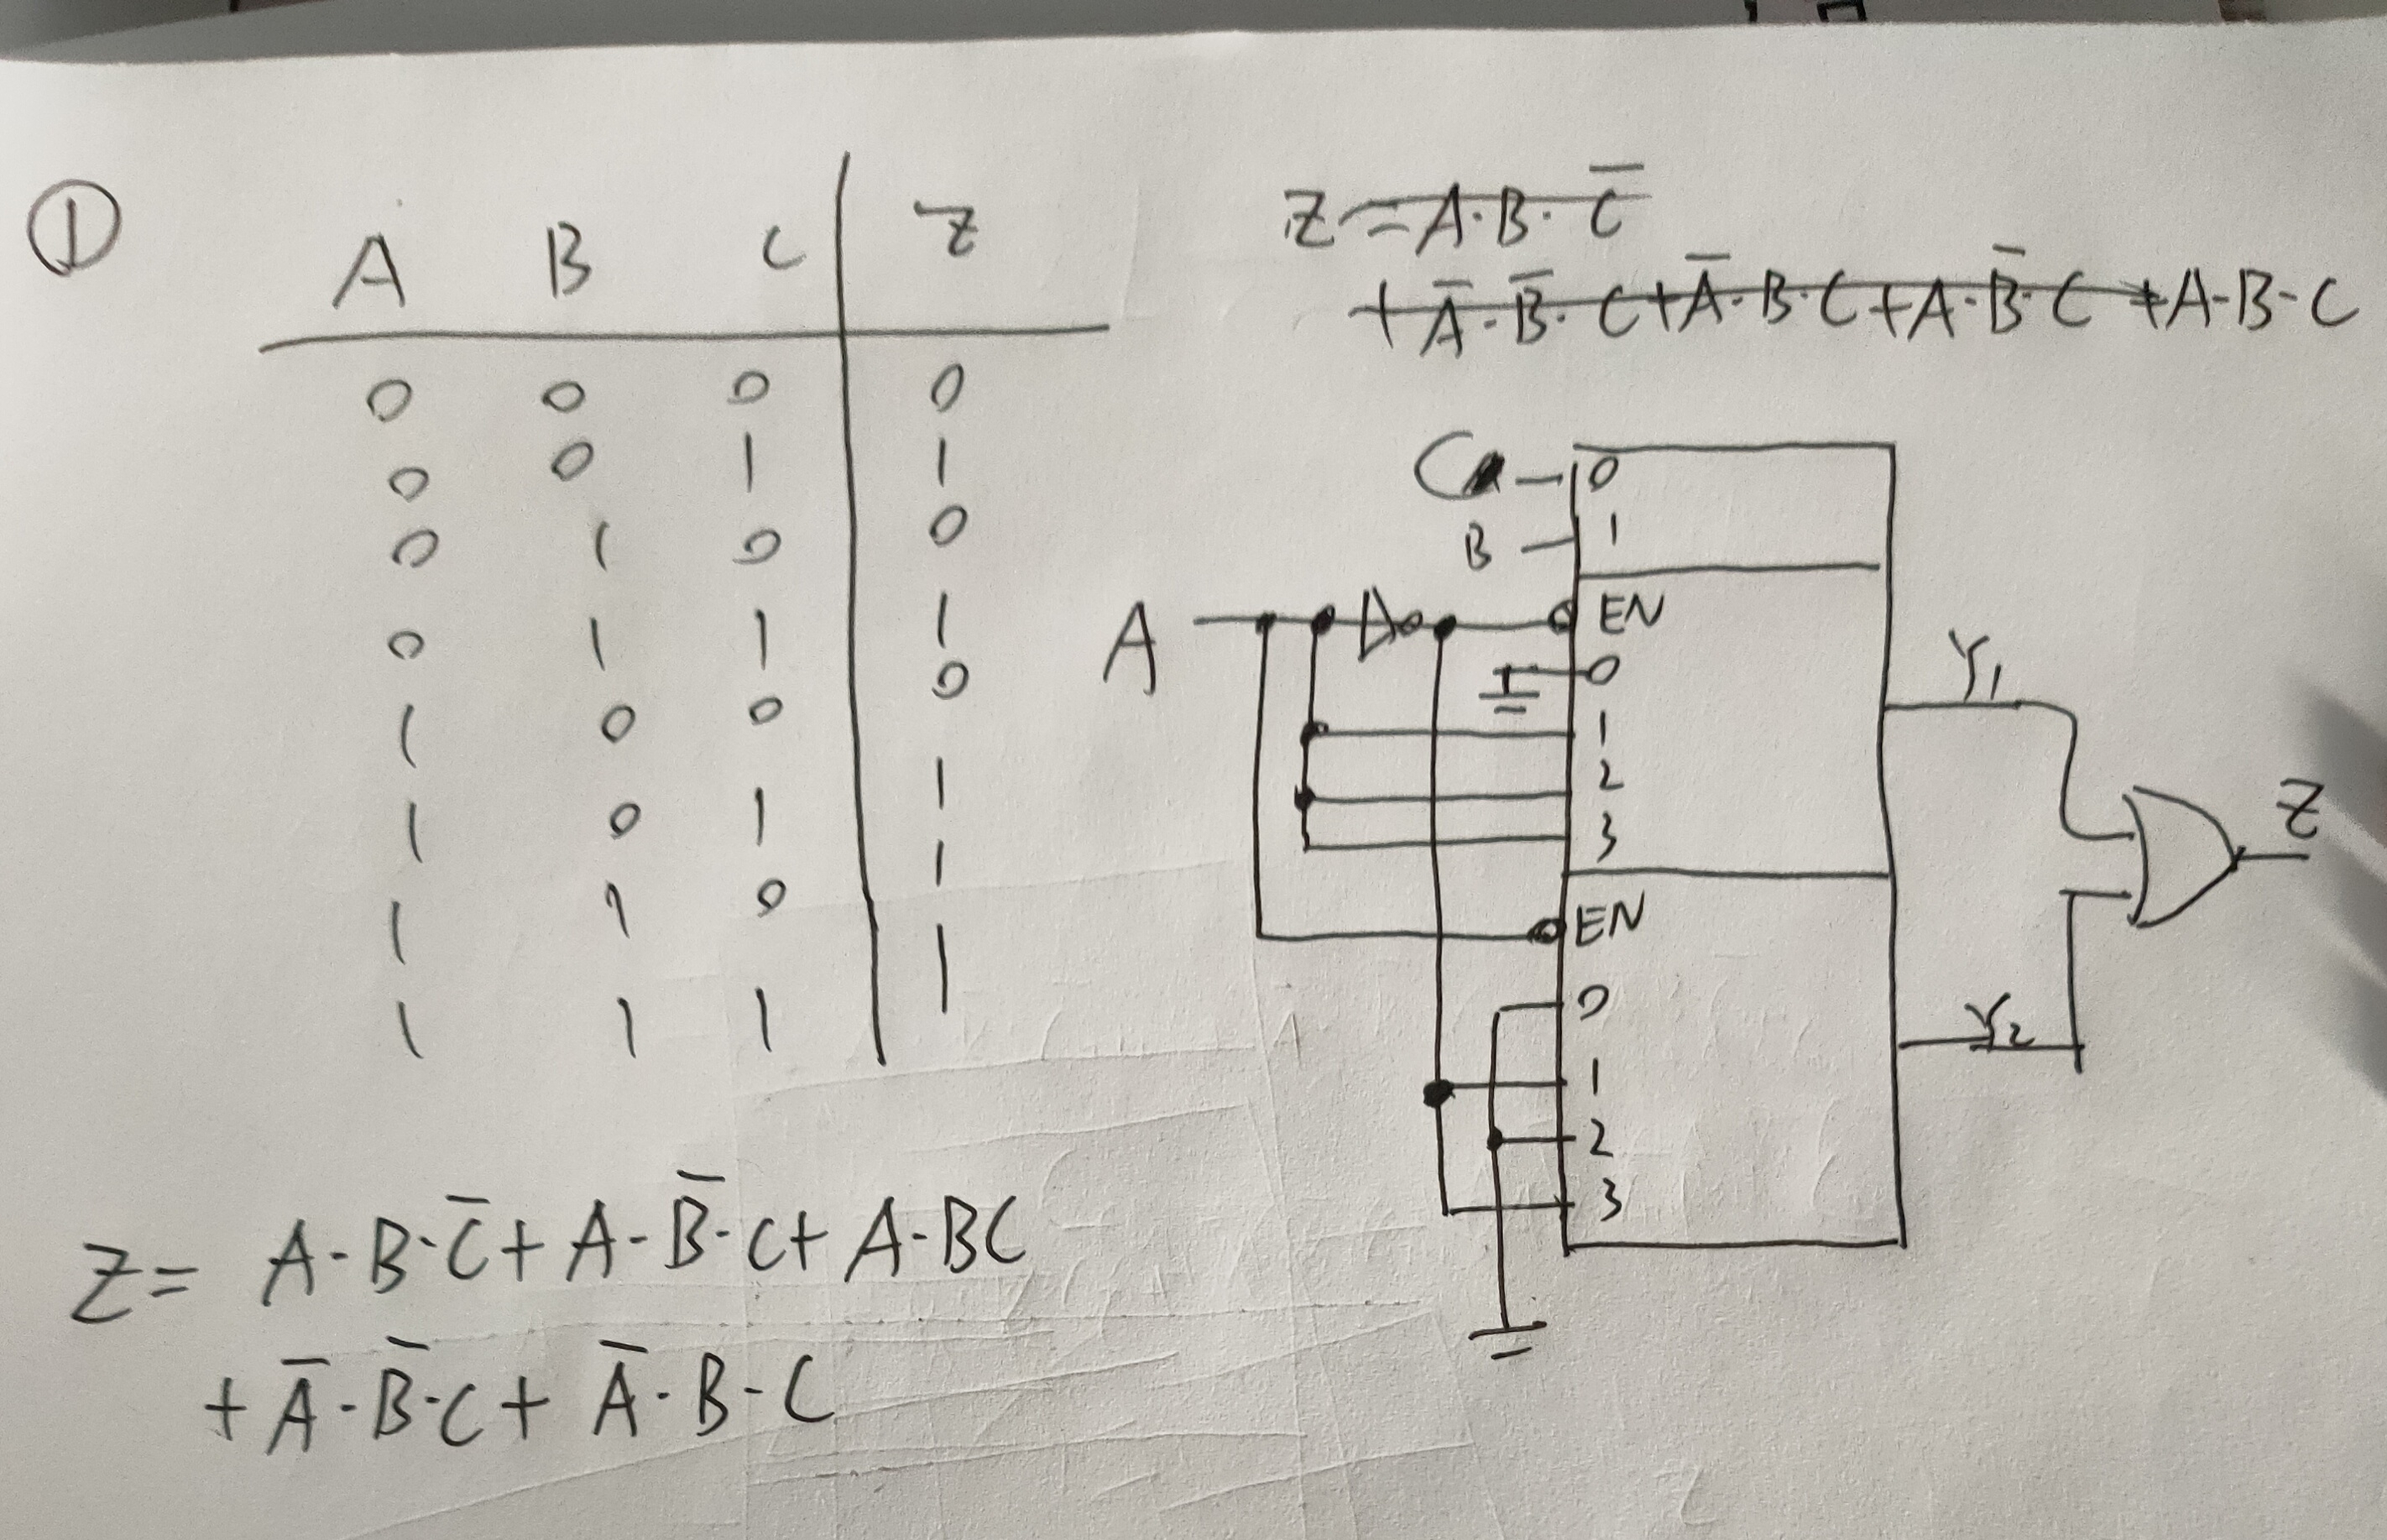 ①
A B C Z
0 0 0 0
0 0 1 1
0 1 0 0
0 1 1 1
1 0 0 0
1 0 1 1
1 1 0 1
1 1 1 1
Z = A·B·C̅
+ A̅·B̅·C + A̅·B·C + A·B̅·C + A·B·C
C 0
B 1
A EN
0
1
2
3
EN
0
1
2
3
Y₁
Y₂
Z
Z = A·B·C̅ + A·B̅·C + A·BC
+ A̅·B̅·C + A̅·B·C